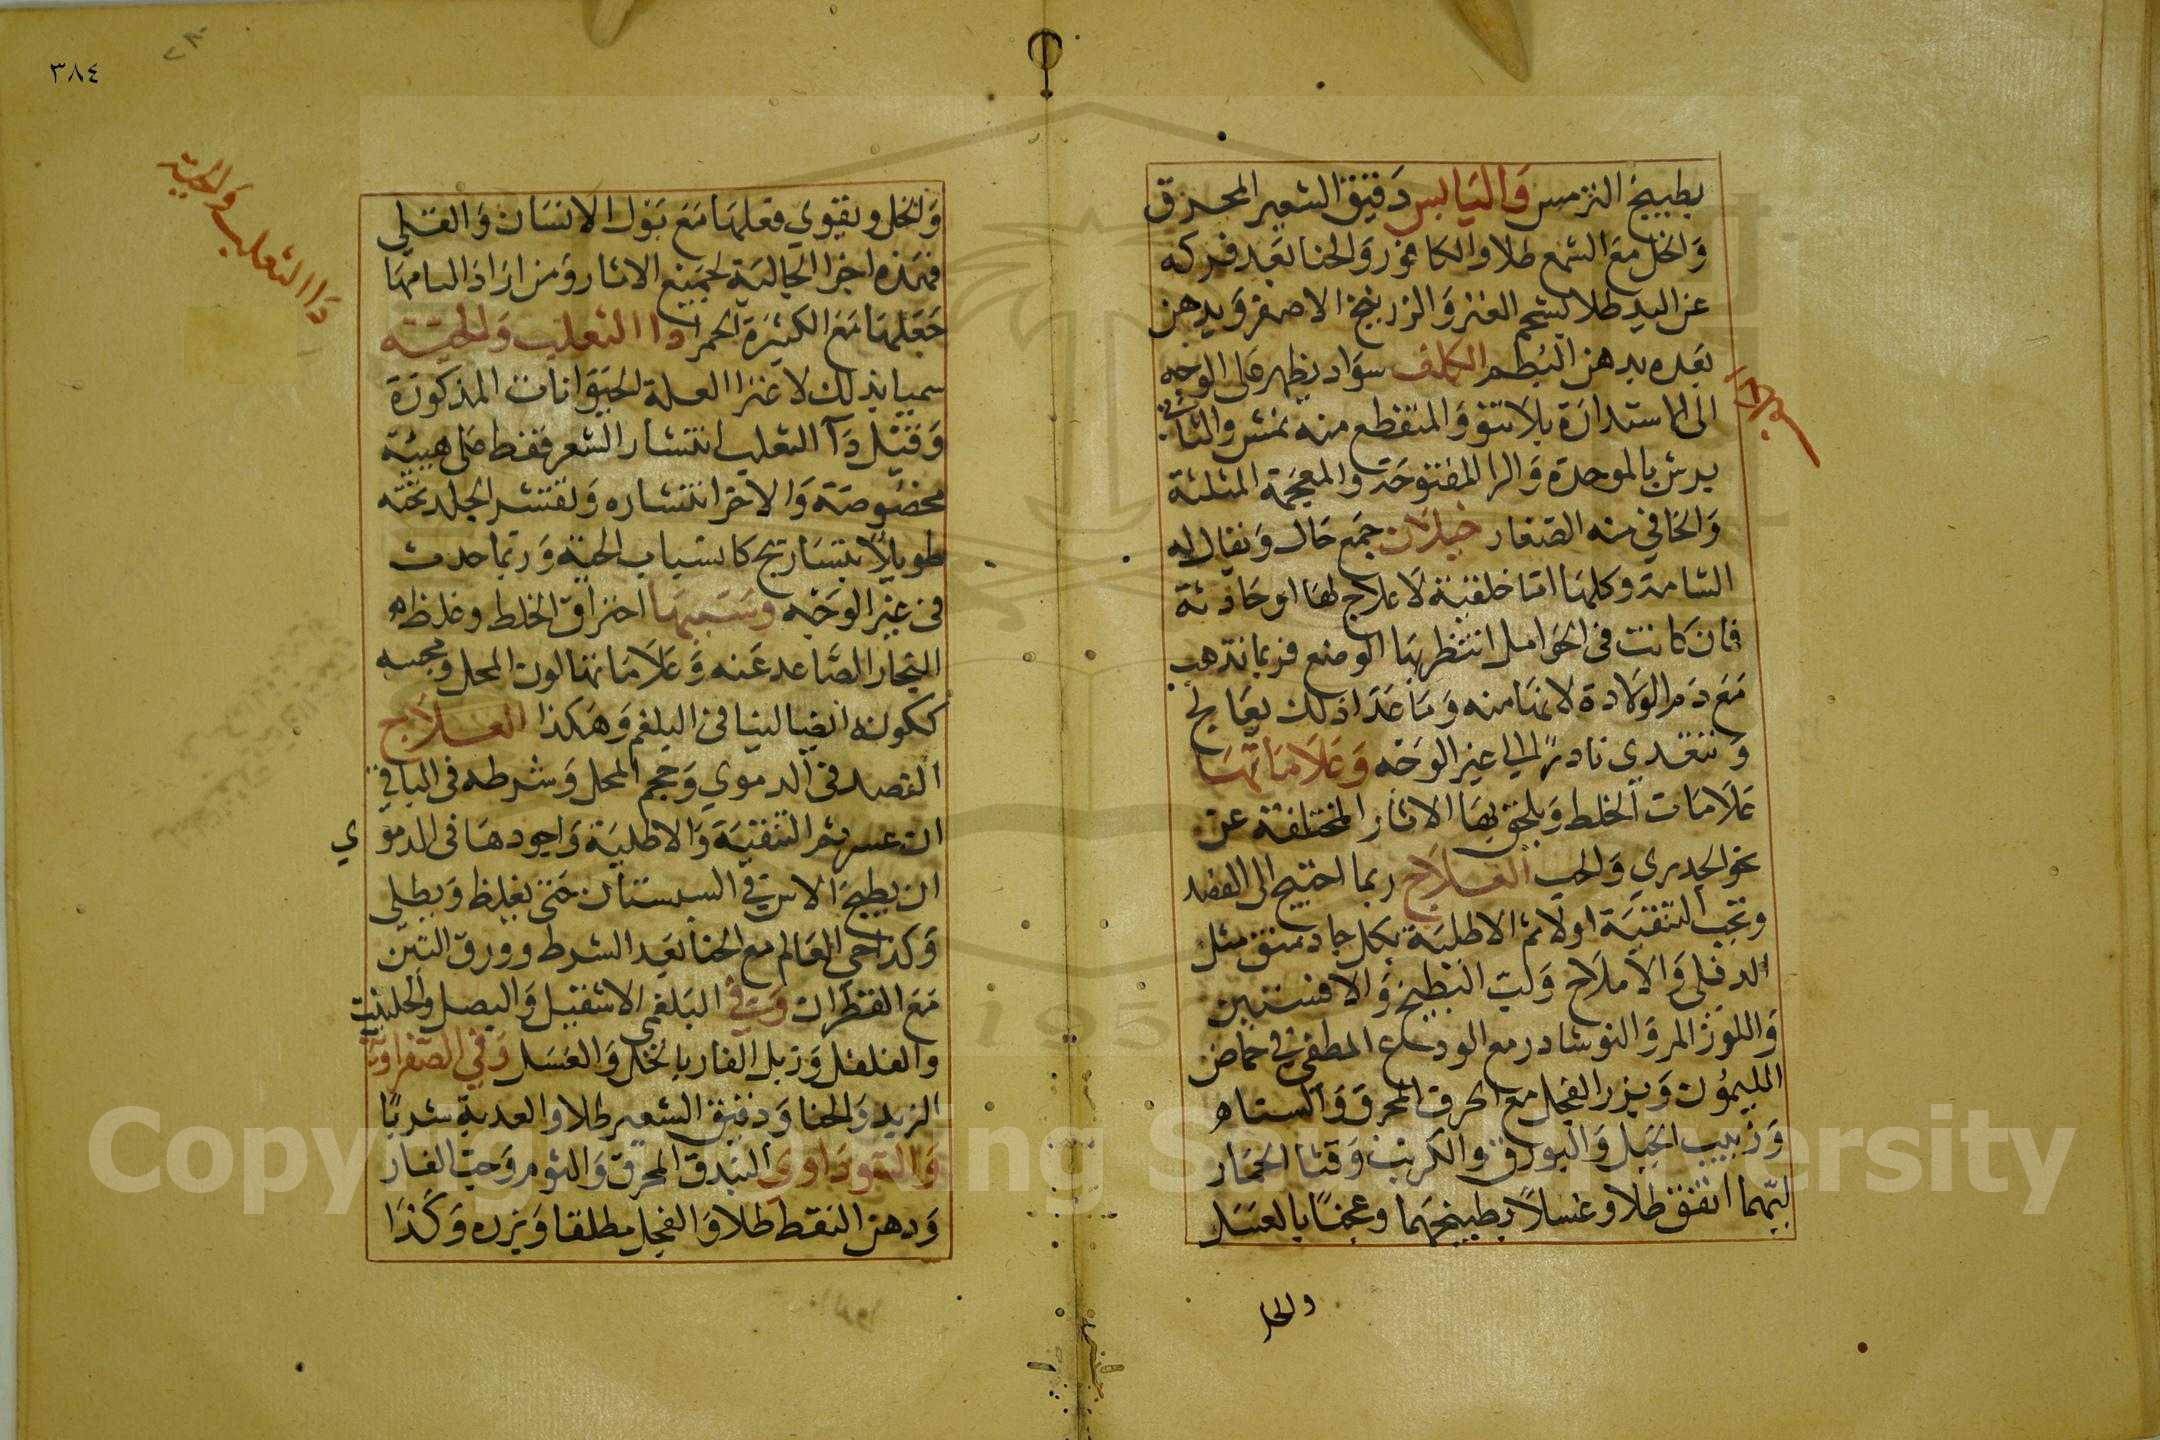 بطبيخ الترمس وَاليَابس دَقيق الشعير المحرق
وَالخل مَع الشمع طلا والكافور وَالحنا بَعد فركه
عن اليد طلا بشحم العنز وَالزرنيخ الاصفر وَيدهن
بَعده بدهن البُطم الكلف سوَاد يظهر على الوجه
الى الاستدارة بلا نتو وَالمتقطع منه نمش والثاني
برش بالموحدة وَالرا المفتوحَة والمعجمة المثلثة
وَالخافي منه الصغار خيلان جمع خال وَيقال له
الشامة وكلها اما خلقية لا علاج لها او حَادثة
فان كانت في الحوَامل انتظر بهَا الوضع فربما تذهب
مَع دَم الولادة لانهَا منه وَمَا عَدَا ذلك يعَالج
وَتتعدى نادرًا الى غير الوَجه وَعَلامَاتهَا
عَلامَات الخلط وَيلحق بهَا الاثار المختلفة عن
نحو الجدري وَالحب العلاج ربما احتيج الى الفصد
وتجب التنقيَة اولا ثم الاطليَة بكل جاد منق مثل
الدفلى وَالاملاح وَلب البطيخ وَالافسنتين
وَاللوز المر وَالنوشادر مع الودع المطفي في حماض
الليمُون وَبزر الفجل مع الخرق المحرق وَالستاه
وَزبيب الجبل وَالبورق والكرنب وَقثا الحمَار
ايهما اتفق طلا وغسلاً بطبيخهَا وعجنًا بالعسَل
والخل
٣٨٤
دَا الثعلب وَالحية
وَالخل ويقوي فعلهَا مَعَ بَول الانسَان وَالقلي
فهَذه اجزا الجالية لجميع الاثار وَمن ارَاد الهامهَا
جَعَلهَا مَعَ الكثيرَة الحمرا دا الثعلب وَالحيَّة
سميا بذلك لاعترا العلة الحيوَانات المذكورَة
وَقيل دَآ الثعلب انتشار الشعر فقط على هيئة
مخصُوصَة وَالاخر انتشاره وَتقشر الجلد تحته
طوبلاً بتسَاريج كانسياب الحية وَربما حدث
في غير الوَجه وسَببهَا احتراق الخلط وغلظ
البخار الصَّاعد عَنه وَعَلامَاتها لون المحل ومجسه
ككونه ابيض لينا في البلغم وَهَكذا العلاج
الفصد في الدموي وَحجم المحل وَشرطه في الباقي
ان عسر ثم التنقيَة وَالاطليَة وَاجودهَا في الدموي
ان يطبخ الاس في السبستان حَتى يغلظ وَيطلى
وَكذا حي العَالم مع الحنا بَعد الشرط وورق التين
مَعَ القطرَان وَفي البَلغمي الاشقيل وَالبصل وَالحلتيت
والفلفل وَزبل الفار بالخل وَالعَسَل وَفي الصَّفراوي
الزبد وَالحنا وَدقيق الشعير طلا والعدبة شربًا
وَالسودَاوي البَندق المحرق وَالثوم وَحب الغار
وَدهن النفط طلا وَالفجل مطلقا وَبزره وَكَذَا